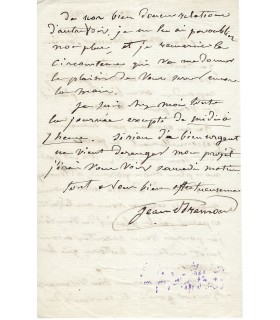 de nos bien douces relations
d'autrefois, je
non plus, et je remercie la
circonstance qui va me donner
le plaisir de vous serrer encore
la main.
Je suis chez moi toute
la journée excepté de midi à
2 heures. Si rien d'a bien urgent
ne vient deranger mon projet
j'irai vous voir samedi matin
tout à vous bien affectueusement
Jean